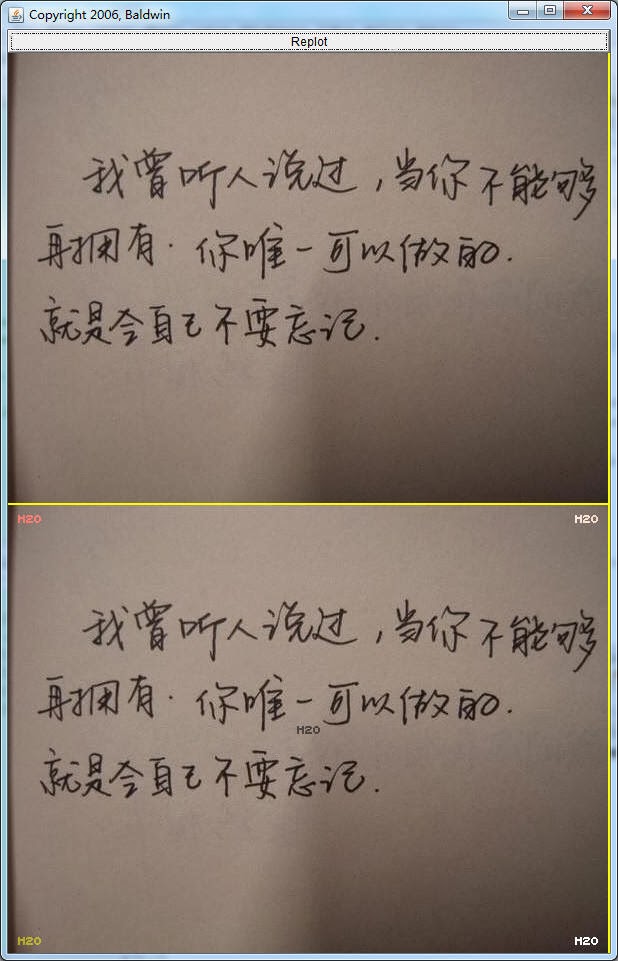 Copyright 2006, Baldwin
Replot
我曾听人说过，当你不能够
再拥有．你唯一可以做的．
就是令自己不要忘记．
H2O H2O
我曾听人说过，当你不能够
再拥有．你唯一可以做的．
H2O
就是令自己不要忘记．
H2O H2O